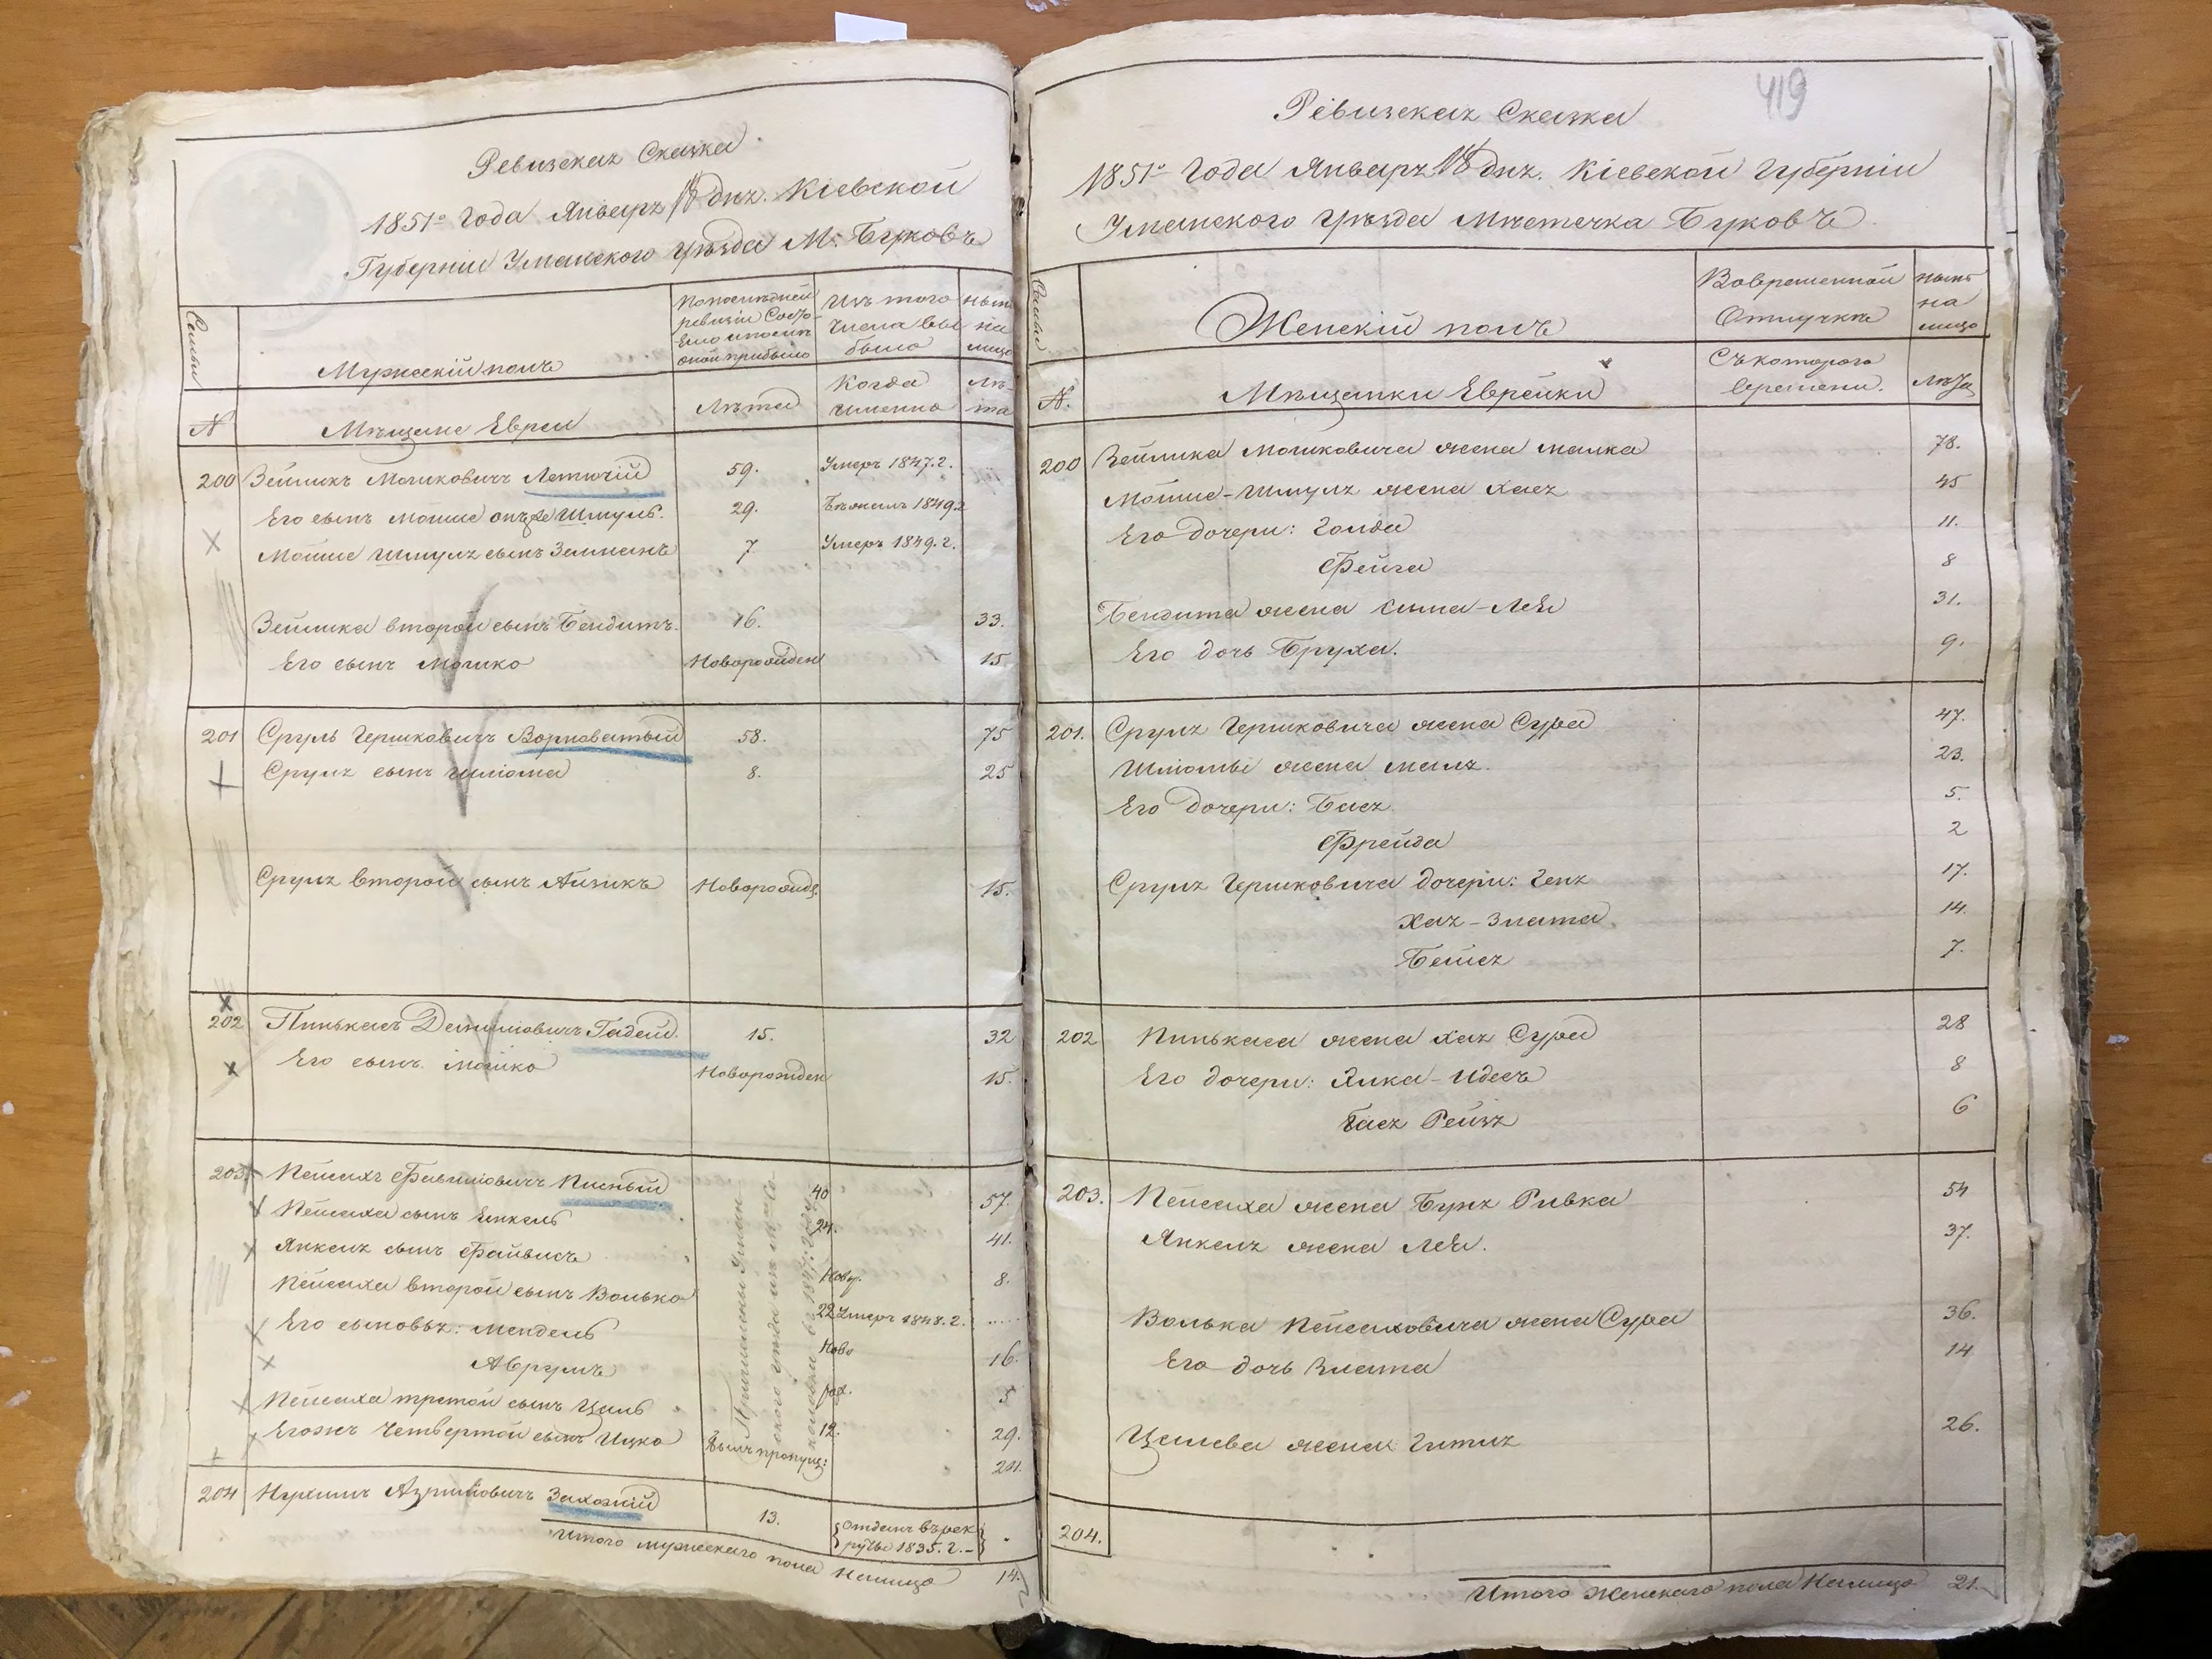 Ревизская Сказка
1851го Года Января 18 дня. Кіевской
Губерніи Уманского уѣзда М. Буковъ
Семьи
Мужескій полъ
По послѣдней ревизіи Состояло и послѣ оной прибыло
Изъ того числа выбыло
Нынѣ на лицо
N
Мѣщане Евреи
Лѣта
Когда именно
Лѣта
200 Зейликъ Мошковичъ Летючій 59. Умеръ 1847. г.
Его сынъ Мошко онже Шмуль. 29. Бѣжалъ 1849 г
Мошко Шмуля сынъ Залманъ 7 Умеръ 1849. г.
Зейлика второй сынъ Бендитъ. 16. 33.
Его сынъ Мошко Новорожден 15
201 Сруль Гершковичъ Ворноватый 58. 75
Сруля сынъ Шліома 8. 25
Сруля второй сынъ АйзикъНоворожд 15.
202 Пинькасъ Даниловичъ Гадей. 15. 32
Его сынъ Мошко Новорожден 15.
203. Пейсахъ Файвиловичъ Писный 40 57.
Пейсаха сынъ Янкель 24. 41.
Янкеля сынъ Файвисъ Нову. 8.
Пейсаха второй сынъ Волько 22 Умеръ 1848. г. .....
Его сыновья: Мендель Ново 16.
Аврумъ рож. 5
Пейсаха третой сынъ Цаль 12. 29.
Егожъ четвертой сынъ Ицко Былъ пропущ: 20.
204 Нухимъ Азриловичъ Захожій 13. Отданъ въ рек
руты 1835. г. –
Итого мужескаго пола На лицо 14.
419
Ревизская Сказка
1851го Года Января 18 дня. Кіевской Губерніи
Уманского уѣзда Мѣстечка Буковъ
Семьи
Женскій полъ
Во временной Отлучкѣ
Нынѣ на лицо
N.
Мѣщанки Еврейки
Съ котораго времени.
Лѣта
200 Зейлика Мошковича жена Малка 78.
Мошко-Шмуля жена Хася 45
Его дочери: Голда 11.
Фейга 8
Бендита жена Сима-Лея 31.
Его дочь Бруха. 9.
201. Сруля Гершковича жена Сура 47.
Шліомы жена Маля. 23.
Его дочери: Бася 5.
Фрейда 2
Сруля Гершковича дочери: Геня 17.
Хая-Злата 14.
Бейся 7.
202 Пинькаса жена Хая Сура 28
Его дочери: Элка-Идесъ 8
Бася Рейзя 6
203. Пейсаха жена Буня Ривка 54
Янкеля жена Лея. 37.
Волька Пейсаховича жена Сура 36.
Его дочь Злата 14
Цалева жена Гитля 26.
204.
Итого Женскаго пола На лицо 21.